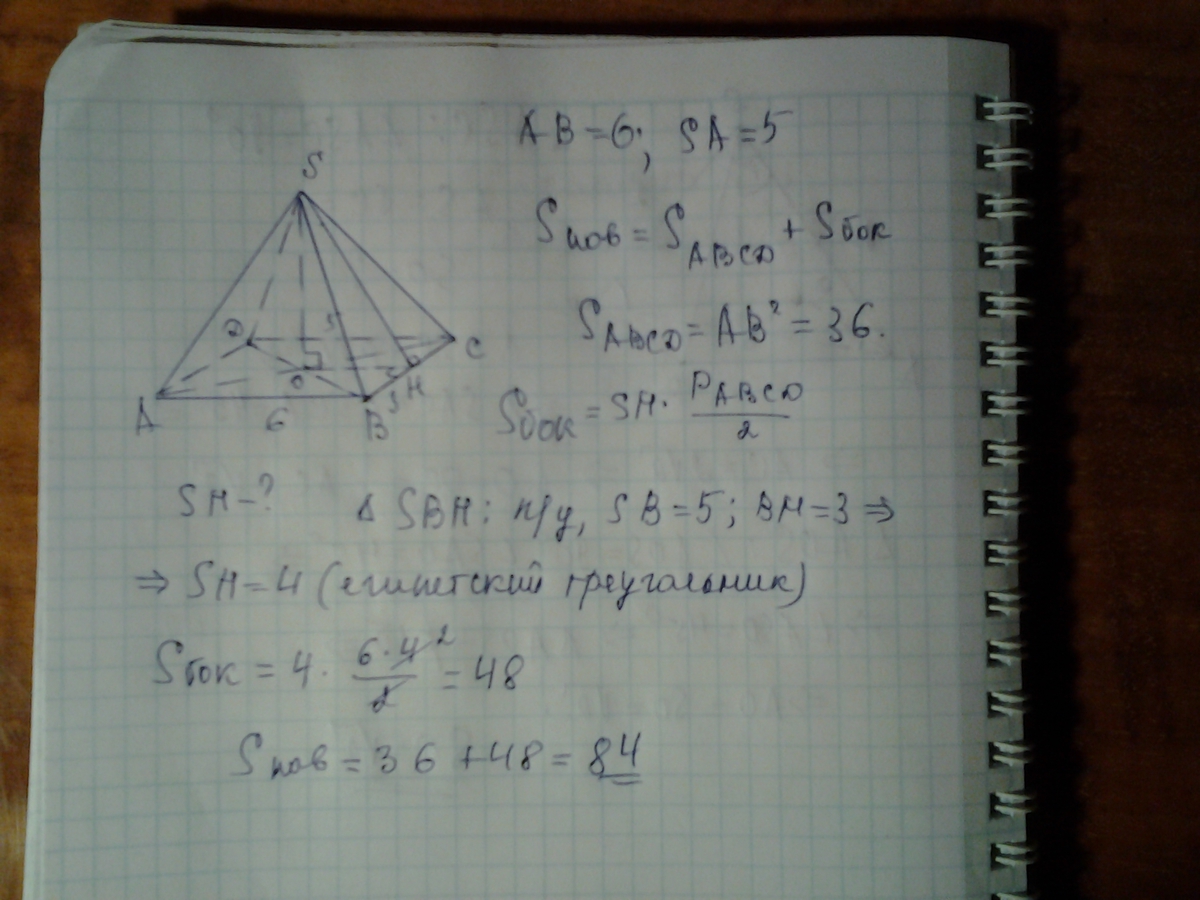 AB = 6; SA = 5
S
Sпов = S ABCD + Sбок
S ABCD = AB² = 36.
D 5 C
O H
3
A 6 B
Sбок = SH · P ABCD / 2
SH - ? Δ SBH: п/у, SB = 5; BH = 3 ⇒
⇒ SH = 4 (египетский треугольник)
Sбок = 4 · 6·4 2 / 2 = 48
Sпов = 36 + 48 = 84